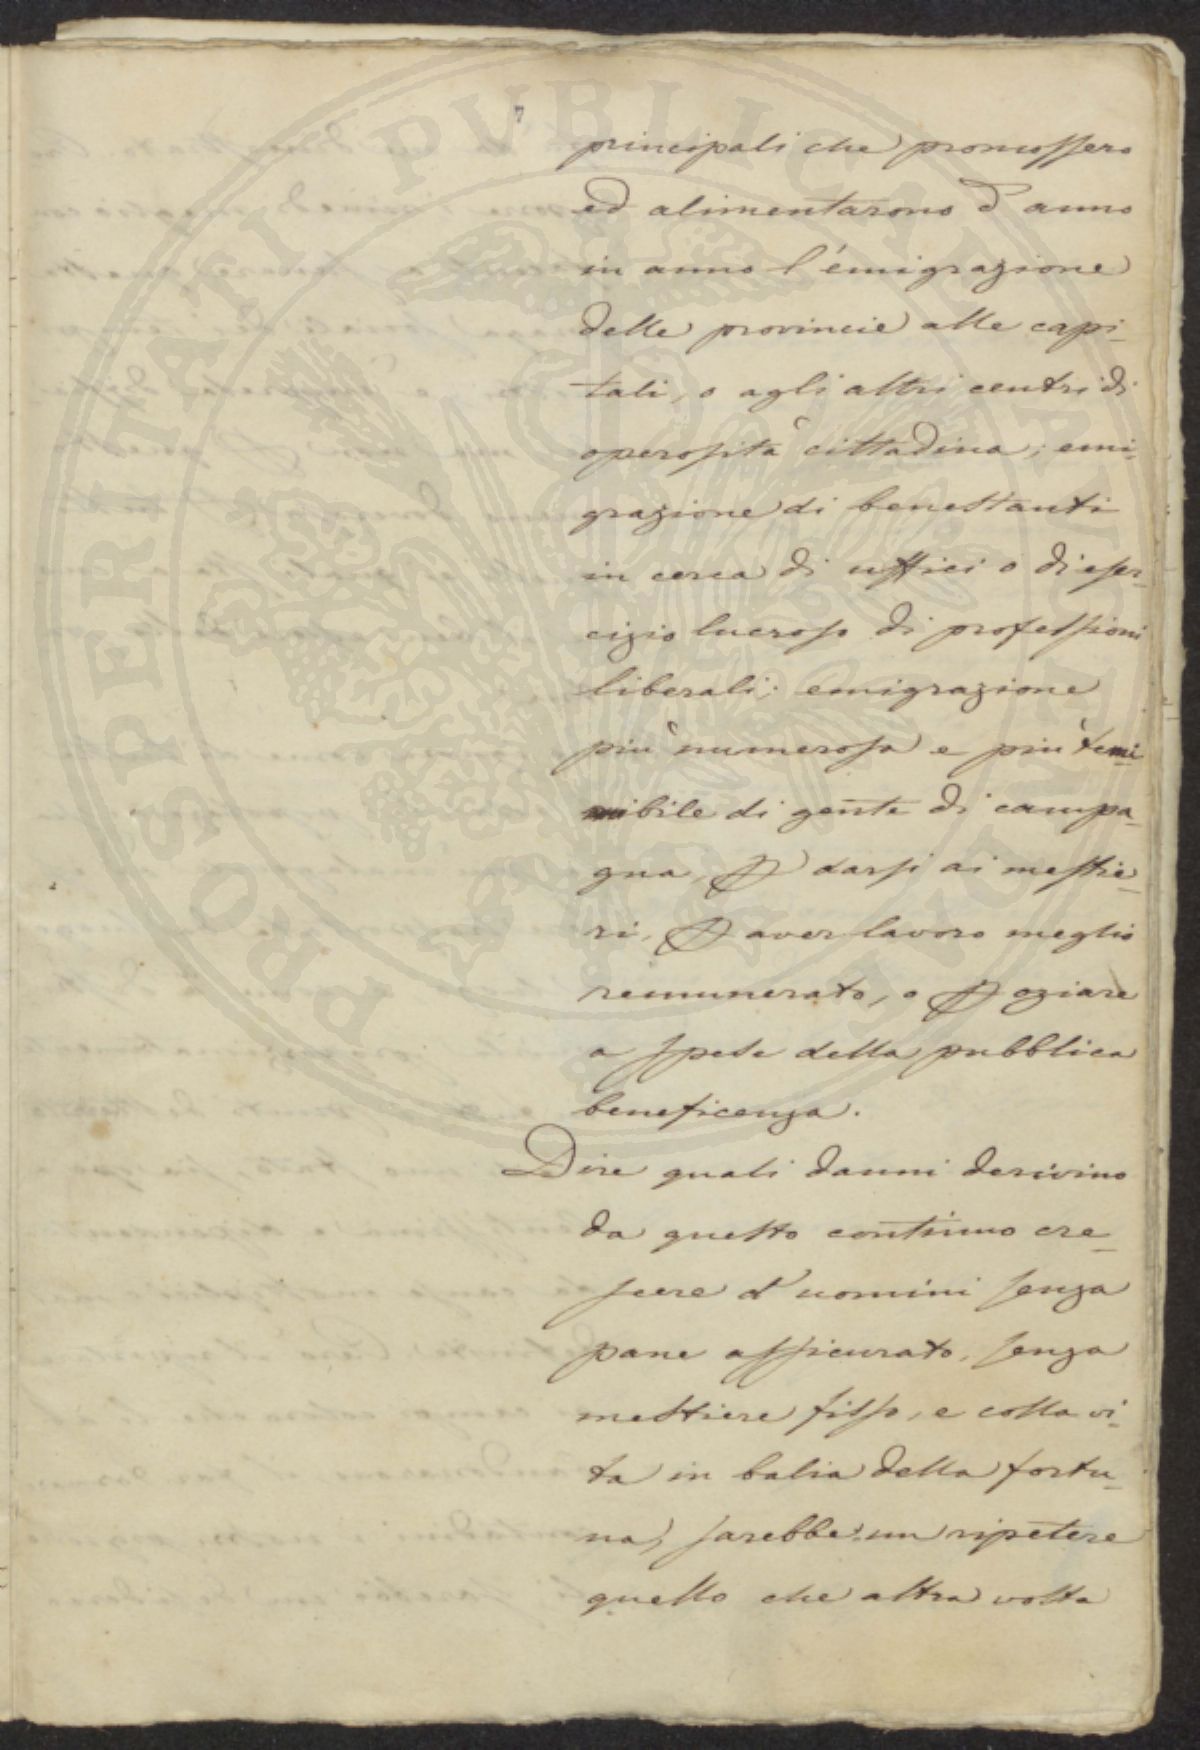 7
principali che promossero
ed alimentarono d'anno
in anno l'emigrazione
delle provincie alle capi-
tali, o agli altri centri di
operosità cittadina; emi-
grazione di benestanti
in cerca di uffici o di eser-
cizio lucroso di professioni
liberali; emigrazione
più numerosa e più temi-
bile di gente di campa-
gna, p darsi ai mestie-
ri, p aver lavoro meglio
remunerato, o p oziare
a spese della pubblica
beneficenza.
Dire quali danni derivino
da questo continuo cre-
scere d'uomini senza
pane assicurato, senza
mestiere fisso, e colla vi-
ta in balia della fortu-
na, sarebbe un ripetere
quello che altra volta
PROSPERITATI PUBLICAE AUGENDAE